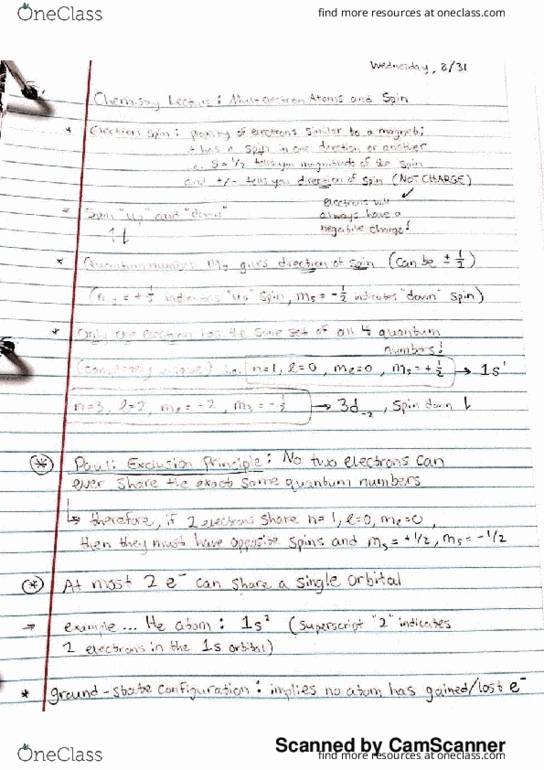 OneClass
find more resources at oneclass.com
Wednesday, 8/31
Chemistry Lecture: Multielectron Atoms and Spin
* Electron Spin: property of electrons similar to a magnet;
it has a spin in one direction or another
S = 1/2 tells you magnitude of spin
and +/- tells you direction of spin (NOT CHARGE)
electrons will
always have a
negative charge!
Spin "up" and "down"
↑↓
* Quantum number ms gives direction of spin (can be ± 1/2)
(ms = + 1/2 indicates "up" spin, ms = - 1/2 indicates "down" spin)
* Only one electron has the same set of all 4 quantum
numbers!
(completely unique) i.e. n=1, l=0, me=0, ms=+ 1/2 → 1s¹
n=3, l=2, me=-2, ms=- 1/2 → 3d-2, spin down ↓
* Pauli Exclusion Principle: No two electrons can
ever share the exact same quantum numbers
↳ therefore, if 2 electrons share n=1, l=0, me=0,
then they must have opposite spins and ms=+1/2, ms=-1/2
* At most 2 e⁻ can share a single orbital
⇒ example... He atom: 1s² (superscript "2" indicates
2 electrons in the 1s orbital)
* ground-state configuration: implies no atom has gained/lost e⁻
Scanned by CamScanner
OneClass
find more resources at oneclass.com